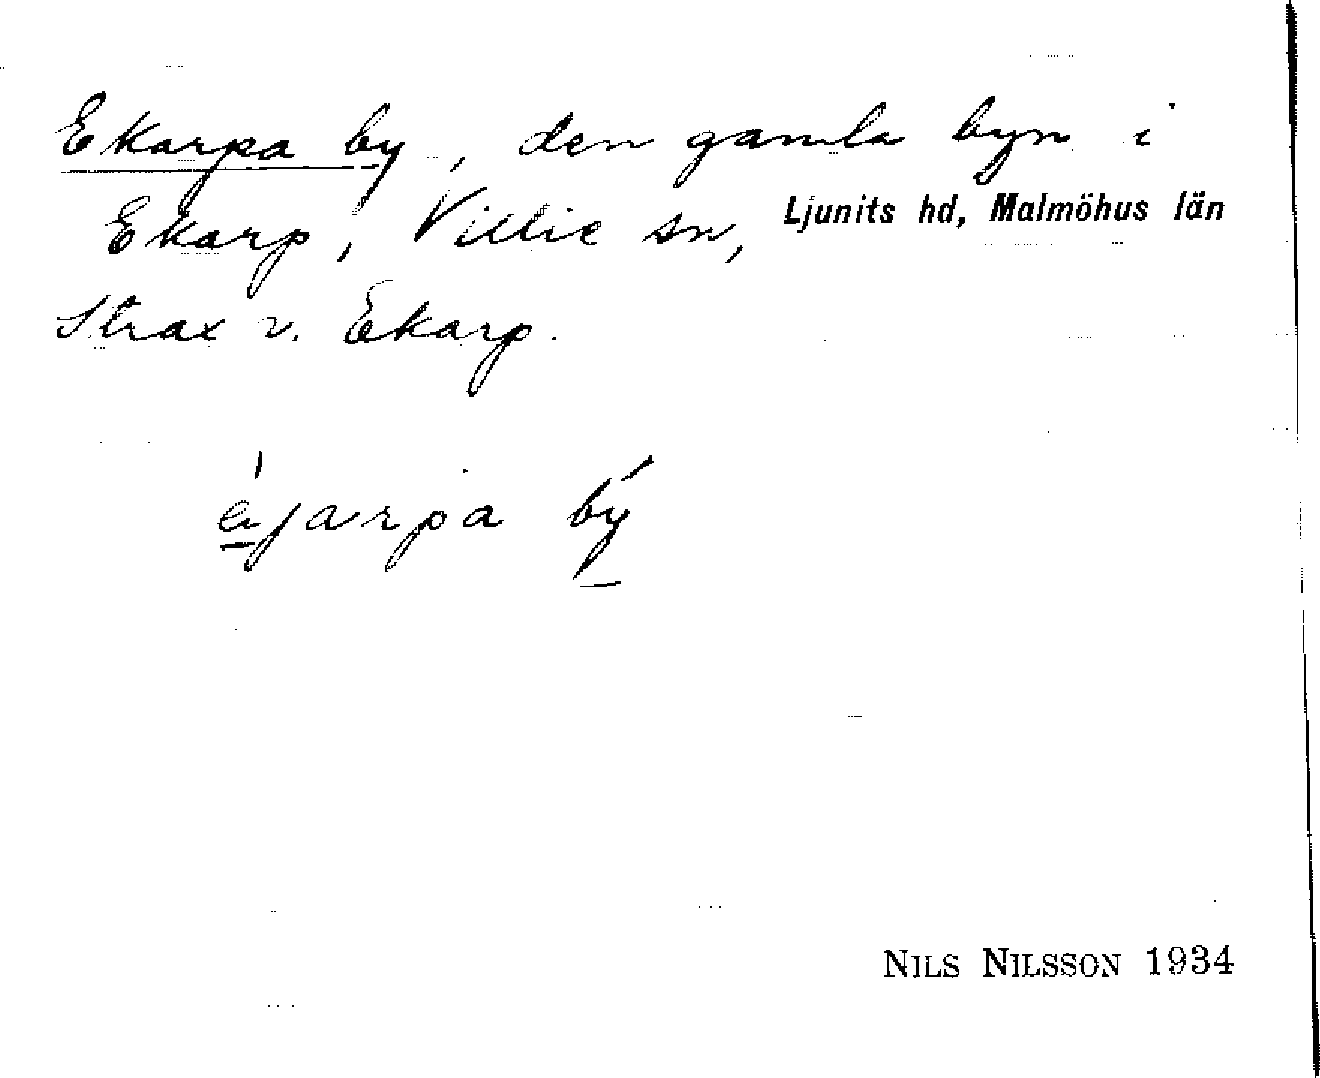 Ekarpa by, den gamla byn i
Ekarp, Villie sn, Ljunits hd, Malmöhus län
Strax v. Ekarp.
by
NILS NILSSON 1934